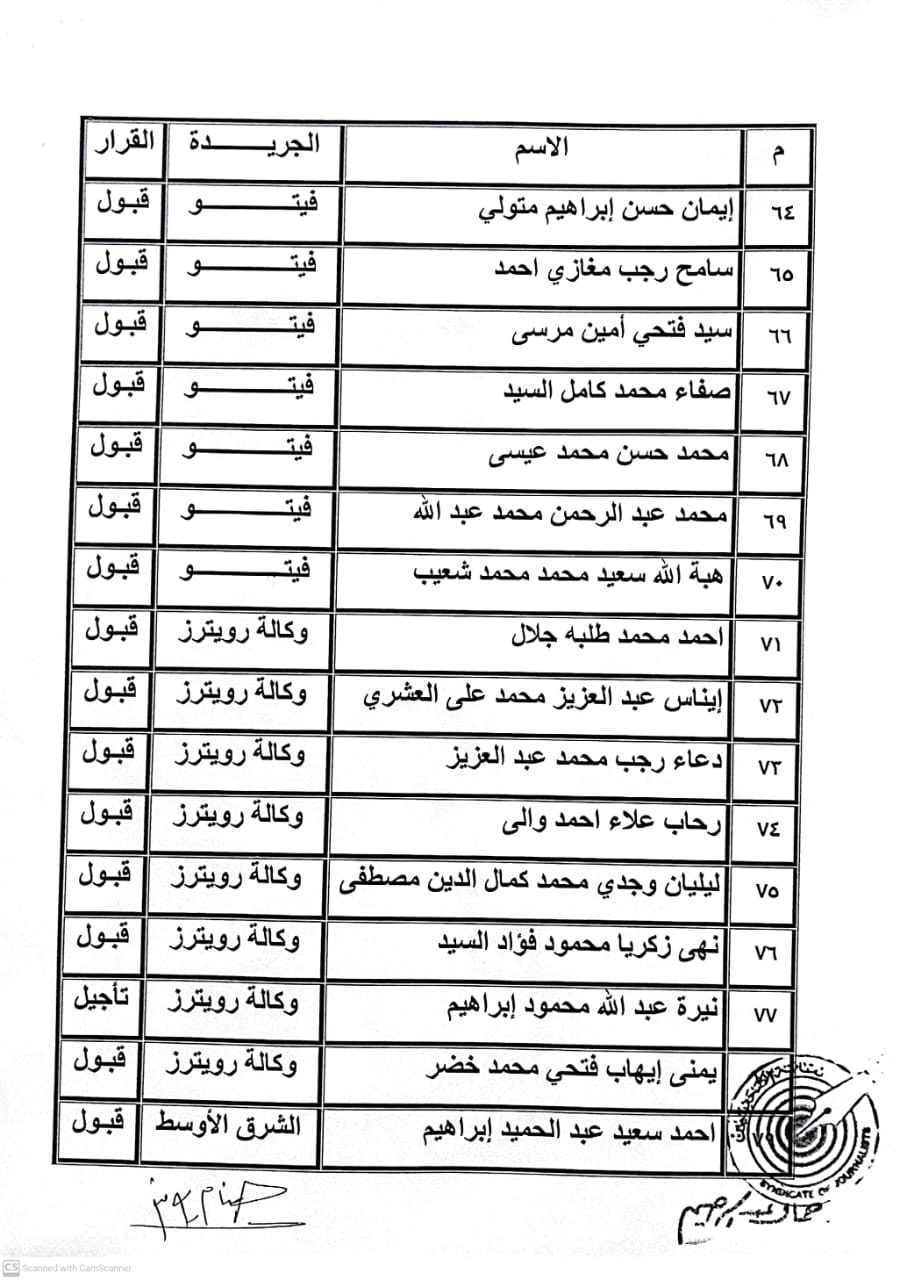 م الاسم الجريـــــــدة القرار
٦٤ إيمان حسن إبراهيم متولي فيتـــــــــــــو قبول
٦٥ سامح رجب مغازي احمد فيتـــــــــــــو قبول
٦٦ سيد فتحي أمين مرسى فيتـــــــــــــو قبول
٦٧ صفاء محمد كامل السيد فيتـــــــــــــو قبول
٦٨ محمد حسن محمد عيسى فيتـــــــــــــو قبول
٦٩ محمد عبد الرحمن محمد عبد الله فيتـــــــــــــو قبول
٧٠ هبة الله سعيد محمد محمد شعيب فيتـــــــــــــو قبول
٧١ احمد محمد طلبه جلال وكالة رويترز قبول
٧٢ إيناس عبد العزيز محمد على العشري وكالة رويترز قبول
٧٣ دعاء رجب محمد عبد العزيز وكالة رويترز قبول
٧٤ رحاب علاء احمد والى وكالة رويترز قبول
٧٥ ليليان وجدي محمد كمال الدين مصطفى وكالة رويترز قبول
٧٦ نهى زكريا محمود فؤاد السيد وكالة رويترز قبول
٧٧ نيرة عبد الله محمود إبراهيم وكالة رويترز تأجيل
يمنى إيهاب فتحي محمد خضر وكالة رويترز قبول
٧٩ احمد سعيد عبد الحميد إبراهيم الشرق الأوسط قبول
SYNDICATE OF JOURNALISTS
CS Scanned with CamScanner